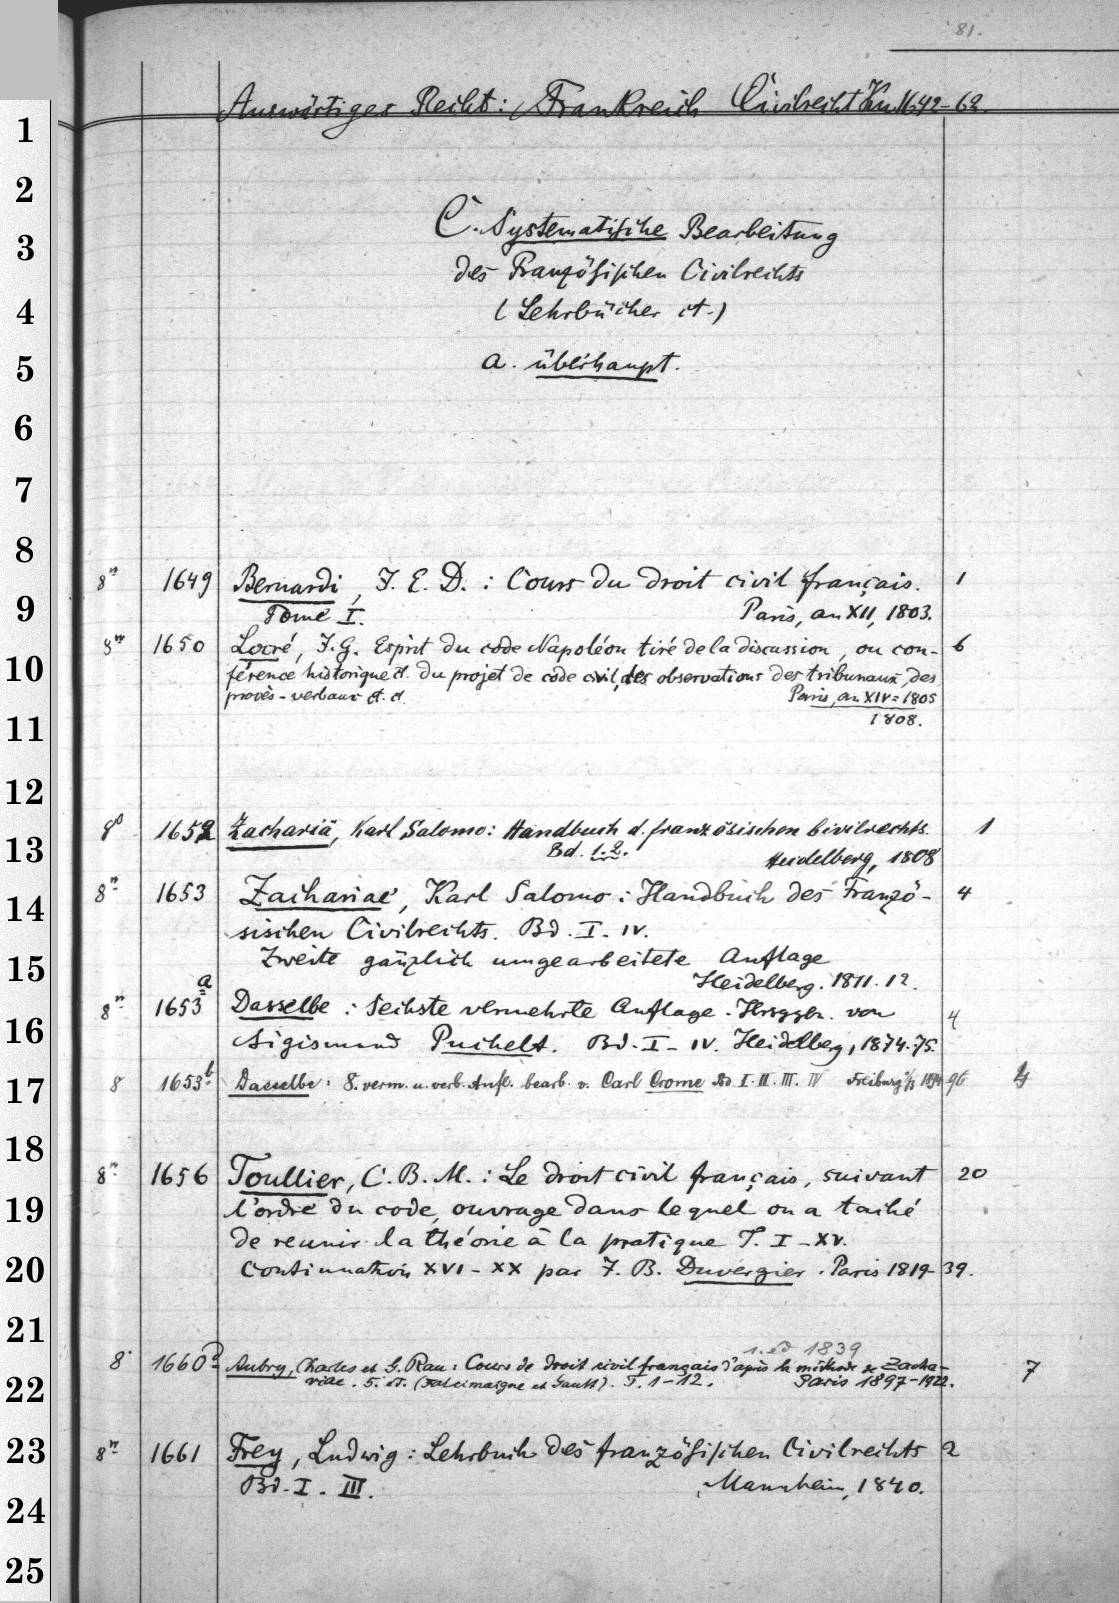 81.
Auswärtiges Recht: Frankreich Civilrecht 1649-62.
1
2
C. Systematische Bearbeitung
3
des Französischen Civilrechts
4
(Lehrbücher ct.)
5
a. überhaupt.
6
7
8
8º 1649 Bernardi, J. E. D.: Cours du droit civil français. 1
9
Tome I. Paris, an XII, 1803.
8º 1650 Locré, J. G. Esprit du code Napoléon tiré de la discussion, ou con- 6
10
férence historique ct. du projet de code civil, des observations des tribunaux, des
procès-verbaux ct. ct. Paris, an XIV = 1805
11
1808.
12
8º 1652 Zachariä, Karl Salomo: Handbuch d. französischen Civilrechts. 1
13
Bd. 1. 2. Heidelberg, 1808
8º 1653 Zachariae, Karl Salomo: Handbuch des Franzö- 4
14
sischen Civilrechts. Bd. I - IV.
15
Zweite gänzlich umgearbeitete Auflage
Heidelberg. 1811. 12.
8º 1653a Dasselbe: Sechste vermehrte Auflage. Hrsggbn. von 4
16
Sigismund Puchelt. Bd. I - IV. Heidelberg, 1874-75.
17
8 1653b Dasselbe: 8. verm. u. verb. Aufl. bearb. v. Carl Crome Bd I. II. III. IV Freiburg i/B 1894-96. 4
18
8º 1656 Toullier, C. B. M.: Le droit civil français, suivant 20
19
l'ordre du code, ouvrage dans lequel on a taché
de reunir la théorie à la pratique T. I - XV.
20
Continuation XVI - XX par J. B. Duvergier. Paris 1819-39.
21
1. ed 1839
8º 1660a Aubry, Charles et G. Rau: Cours de droit civil français d'après la méthode de Zacha- 7
22
riae. 5. éd. (Falcimaigne et Gault). T. 1-12. Paris 1897-1922.
23
8º 1661 Frey, Ludwig: Lehrbuch des französischen Civilrechts 2
Bd. I - III. Mannheim, 1840.
24
25